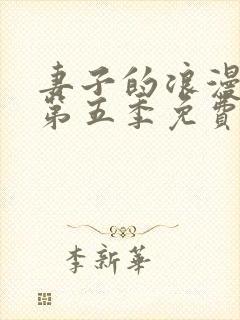 妻子的浪漫
第五季免費
李新華